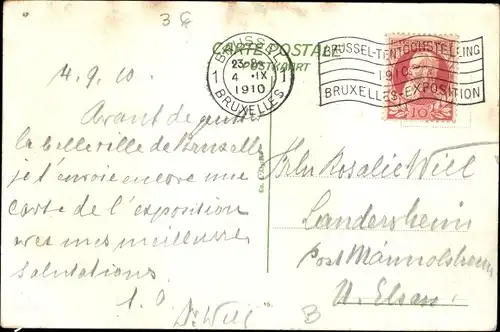 3 €
CARTE POSTALE
POSTKAART
BRUSSEL
1 1
4 IX
1910
BRUXELLES
BRUSSEL-TENTOONSTELLING
1910
BRUXELLES-EXPOSITION
10
4.9.10.
Avant de quitter
la belle ville de Bruxelles
je t'envoie encore une
carte de l'exposition
avec mes meilleures
salutations.
Dr Will
Frln Rosalie Will
Landersheim
Post Männolsheim
U. Elsass
B